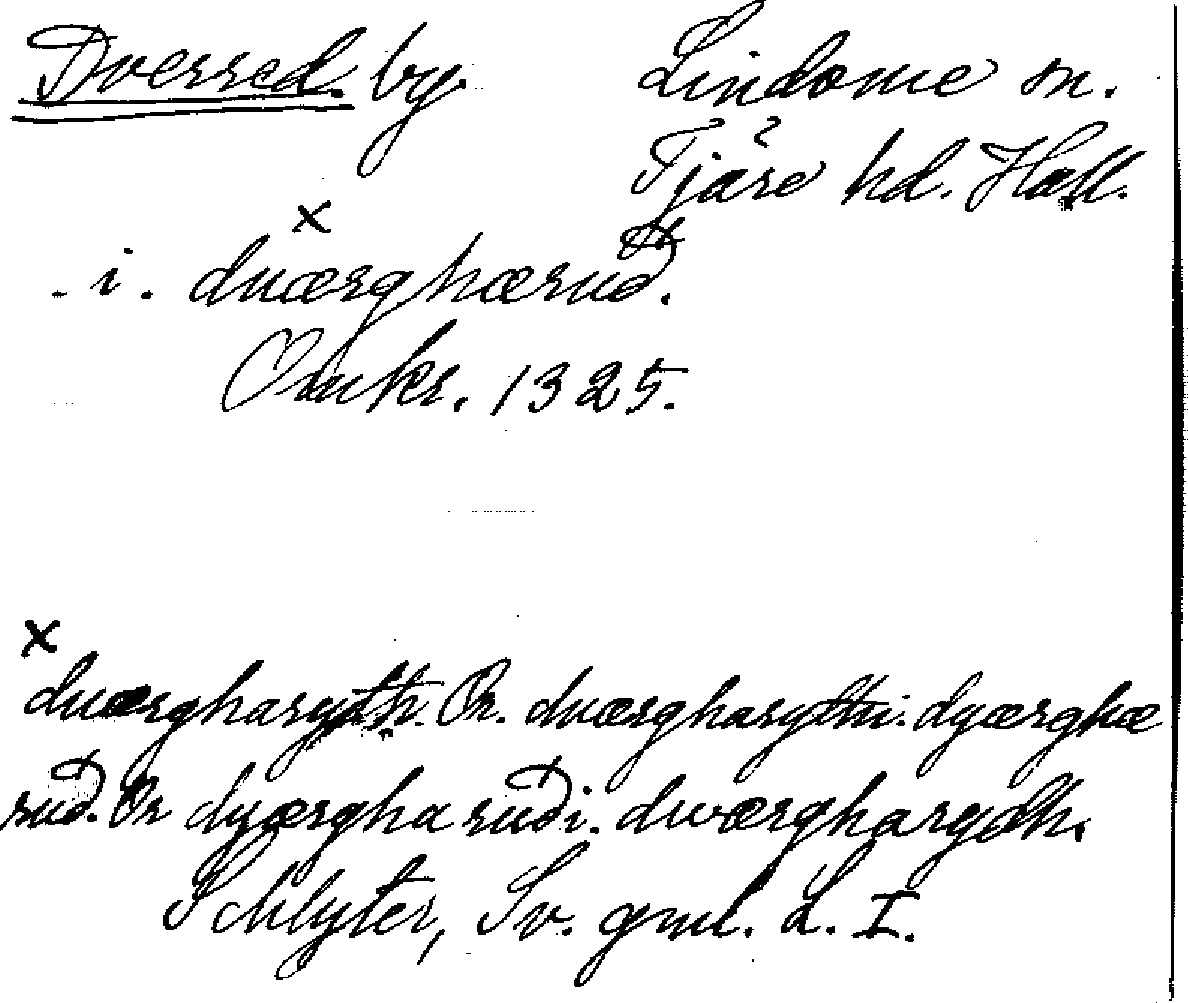 Dverred. by. Lindome sn.
Fjäre hd. Hall.
x
. i. duærghæruð.
Omkr. 1325.
x
duærgharyth. Or. duærgharythi. dyærghæ
ruð. Or dyærgha ruði. dwærgharydh.
Schlyter, Sv. gml. L. I.